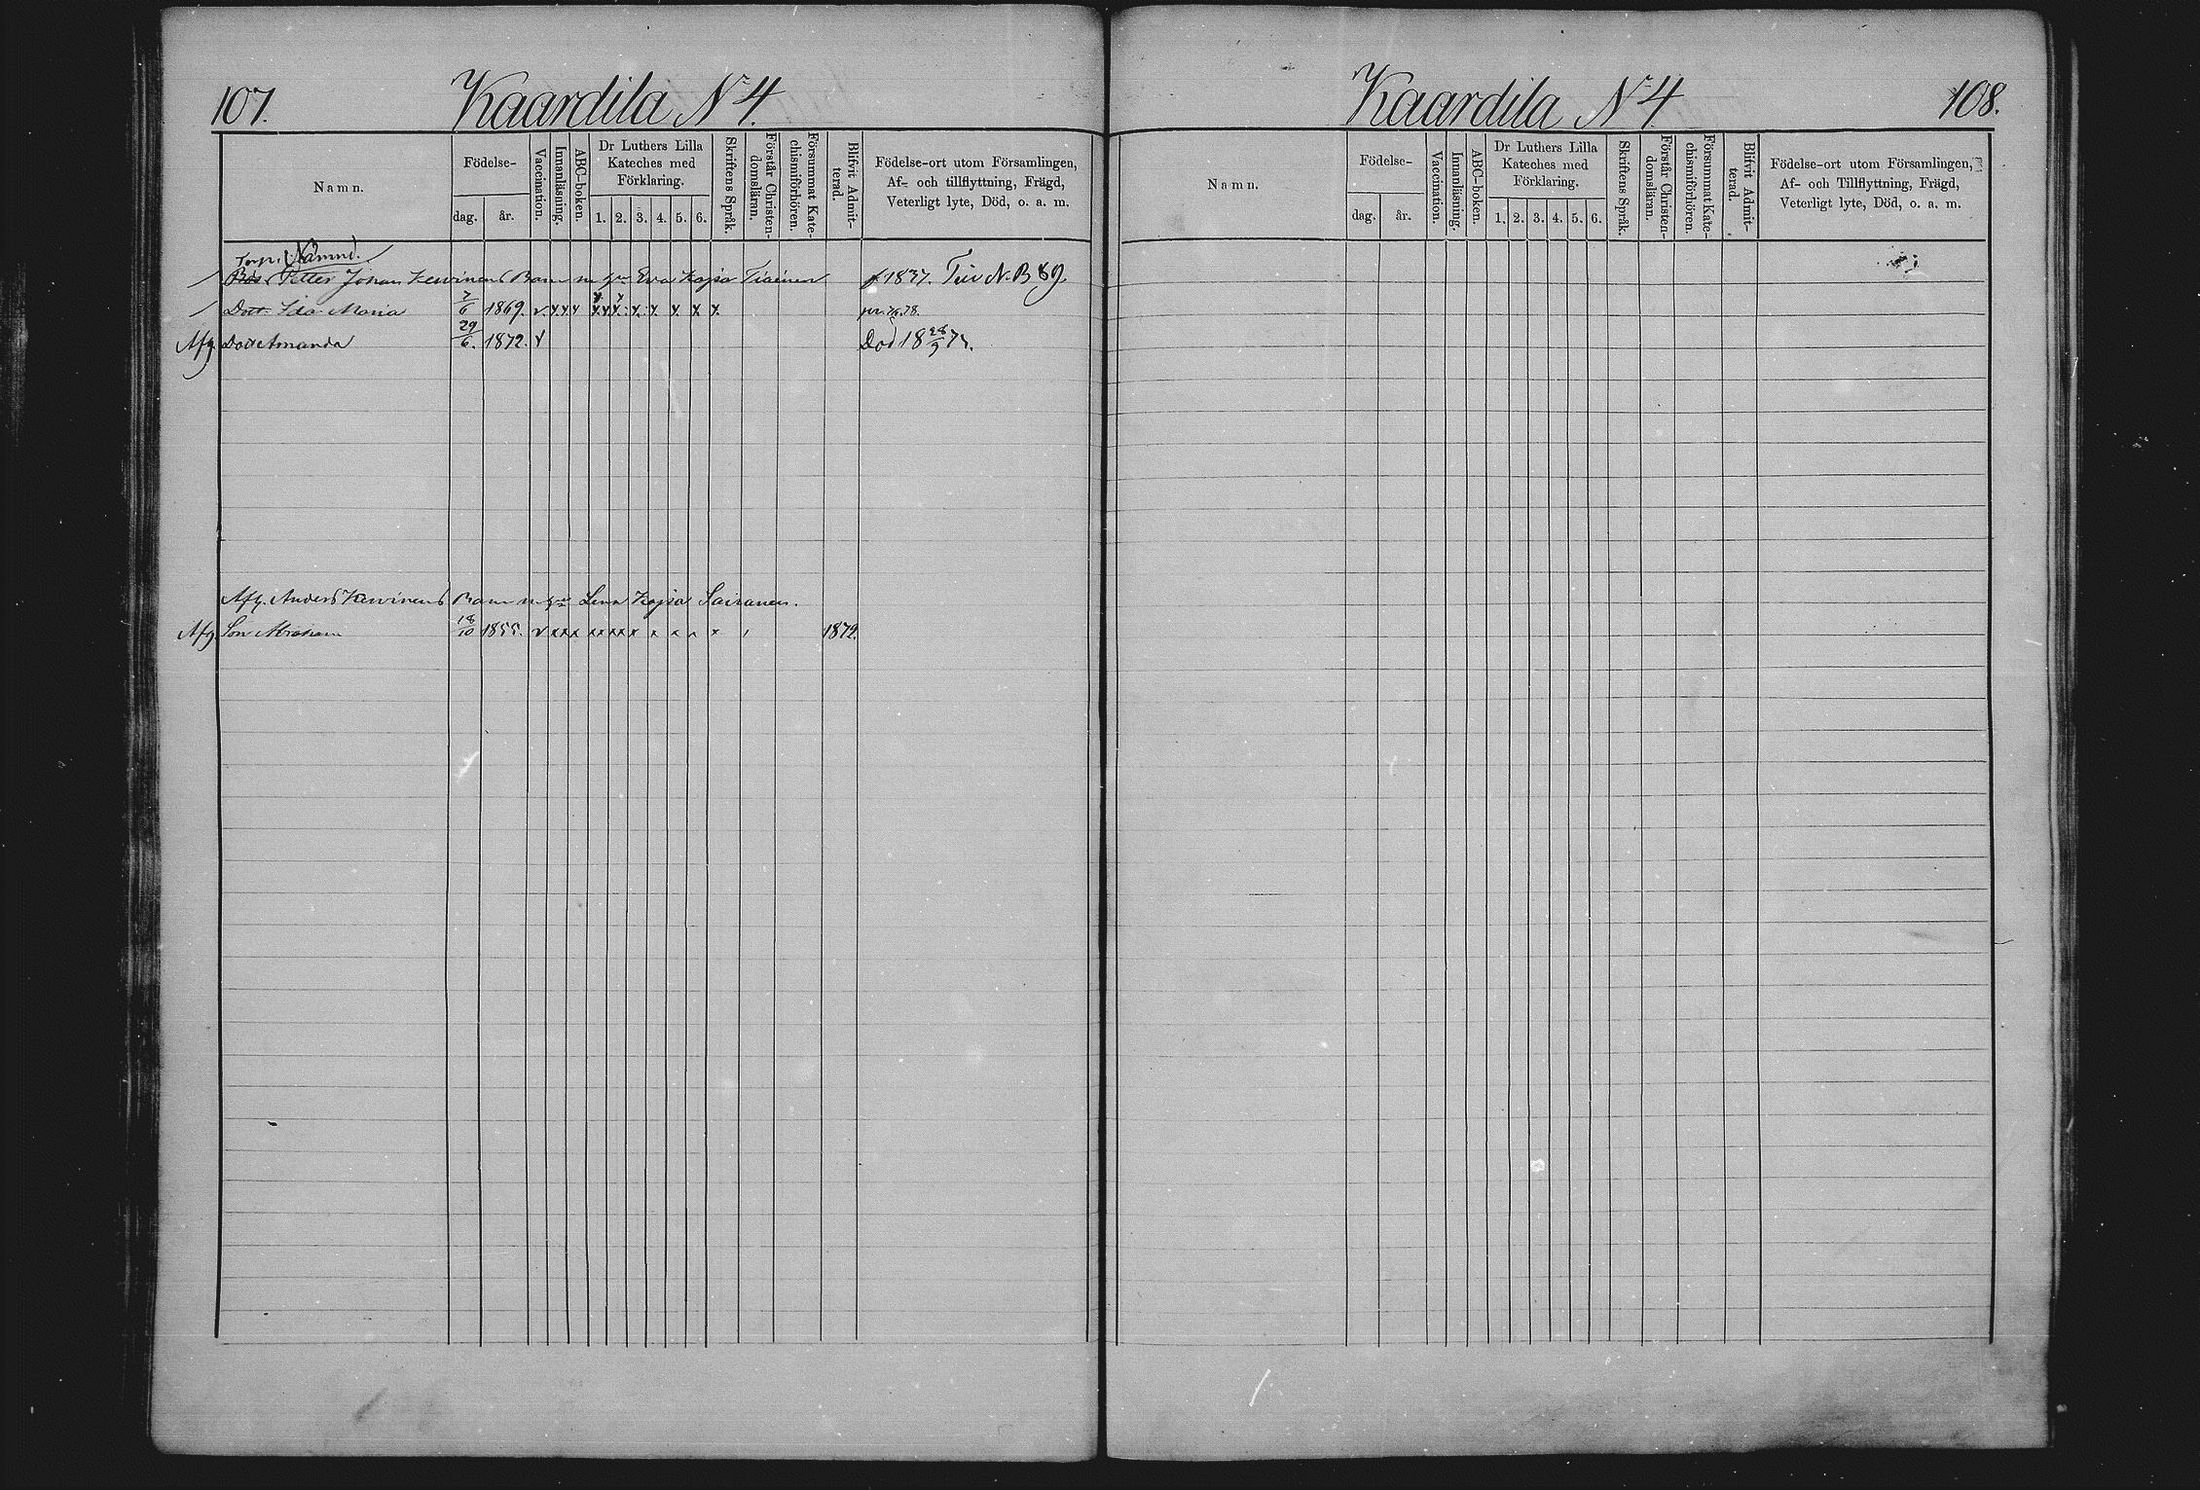 107. Kaardila N 4.
Namn.
Födelse-
dag. år.
Vaccination.
Innanläsning.
ABC-boken.
Dr Luthers Lilla
Kateches med
Förklaring.
1. 2. 3. 4. 5. 6.
Skriftens Språk.
Förstår Christen-
domsläran.
Försummat Kate-
chismiförhören.
Blifvit Admit-
terad.
Födelse-ort utom Församlingen,
Af- och tillflyttning, Frägd,
Veterligt lyte, Död, o. a. m.
Petter Johan Kervinens Barn m. Eva Kajsa Tiainen f 1837.
Dott. Ida Maria 7/6 1869. v x x x x x x x x x x x x
Afg. Dott Amanda 29/6. 1872. v Död 18
Afg. Anders Kervinens Barn m Lena Kajsa Sairanen.
Afg Son Abraham 18/10 1855. v x x x x x x x x x x x x 1872.
Kaardila N 4 108.
Namn.
Födelse-
dag. år.
Vaccination.
Innanläsning.
ABC-boken.
Dr Luthers Lilla
Kateches med
Förklaring.
1. 2. 3. 4. 5. 6.
Skriftens Språk.
Förstår Christen-
domsläran.
Försummat Kate-
chismiförhören.
Blifvit Admit-
terad.
Födelse-ort utom Församlingen,
Af- och Tillflyttning, Frägd,
Veterligt lyte, Död, o. a. m.